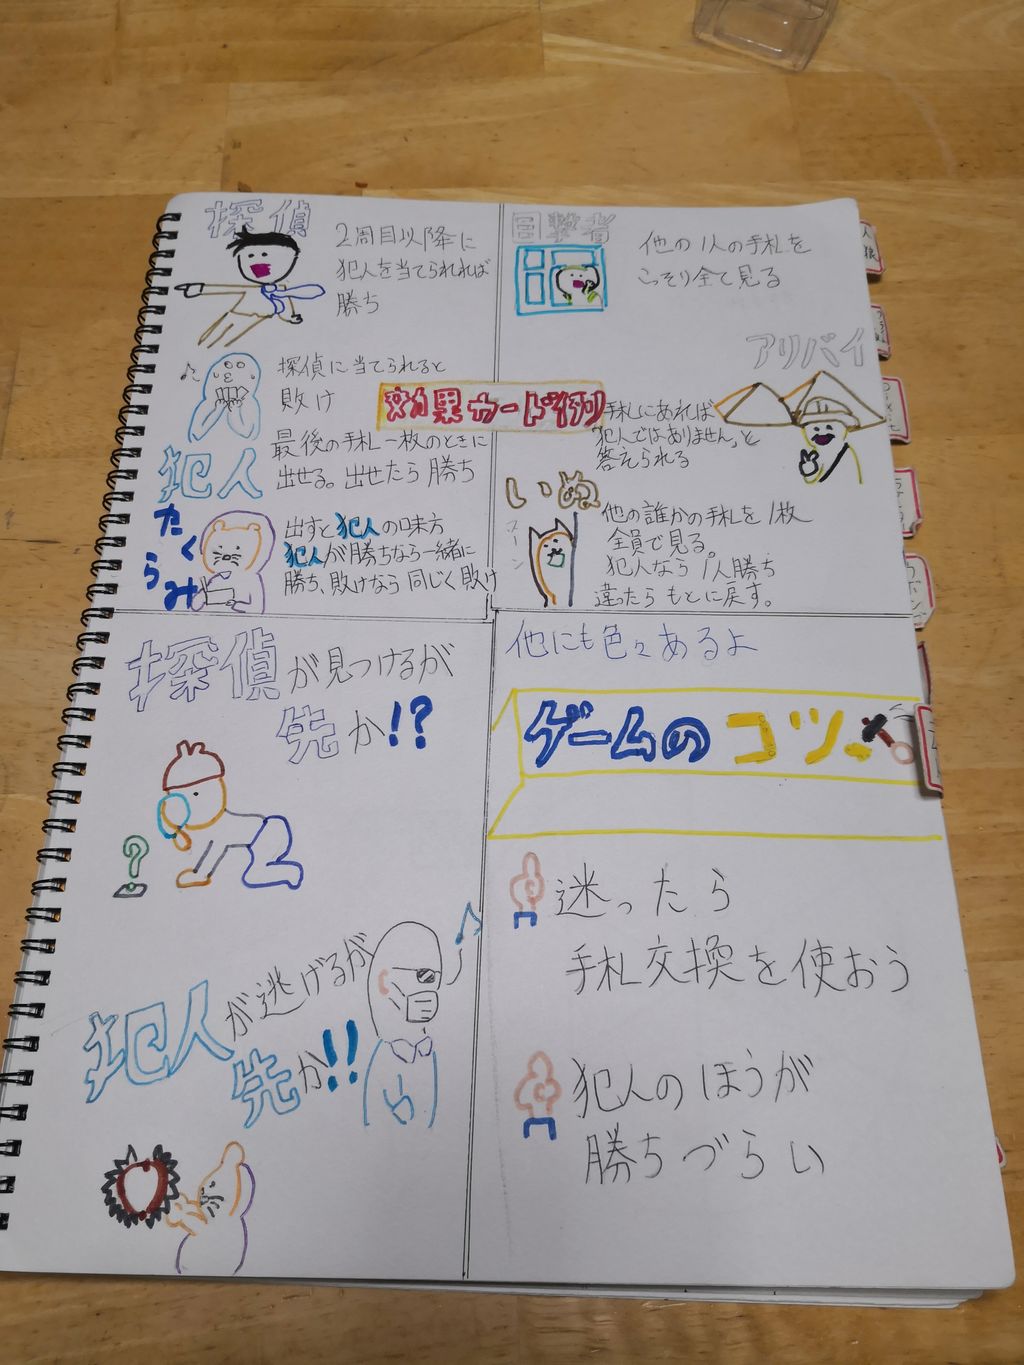 探偵
2周目以降に
犯人を当てられれば
勝ち
犯人
探偵に当てられると
敗け
最後の手札一枚のときに
出せる。出せたら勝ち
たくらみ
出すと犯人の味方
犯人が勝ちなら一緒に
勝ち、敗けなら同じく敗け
効果カード例
目撃者
他の1人の手札を
こっそり全て見る
アリバイ
手札にあれば
"犯人ではありません"と
答えられる
いぬ
他の誰かの手札を1枚
全員で見る。
犯人なら1人勝ち
違ったらもとに戻す。
探偵が見つけるが
先か!?
?
犯人が逃げるが
先か!!
他にも色々あるよ
ゲームのコツ
迷ったら
手札交換を使おう
犯人のほうが
勝ちづらい
人狼